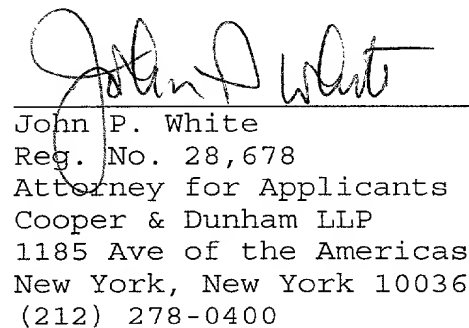 John P White
John P. White
Reg. No. 28,678
Attorney for Applicants
Cooper & Dunham LLP
1185 Ave of the Americas
New York, New York 10036
(212) 278-0400